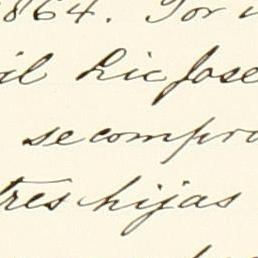 1864. Por
il Lic Jose
se compro
tres hijas